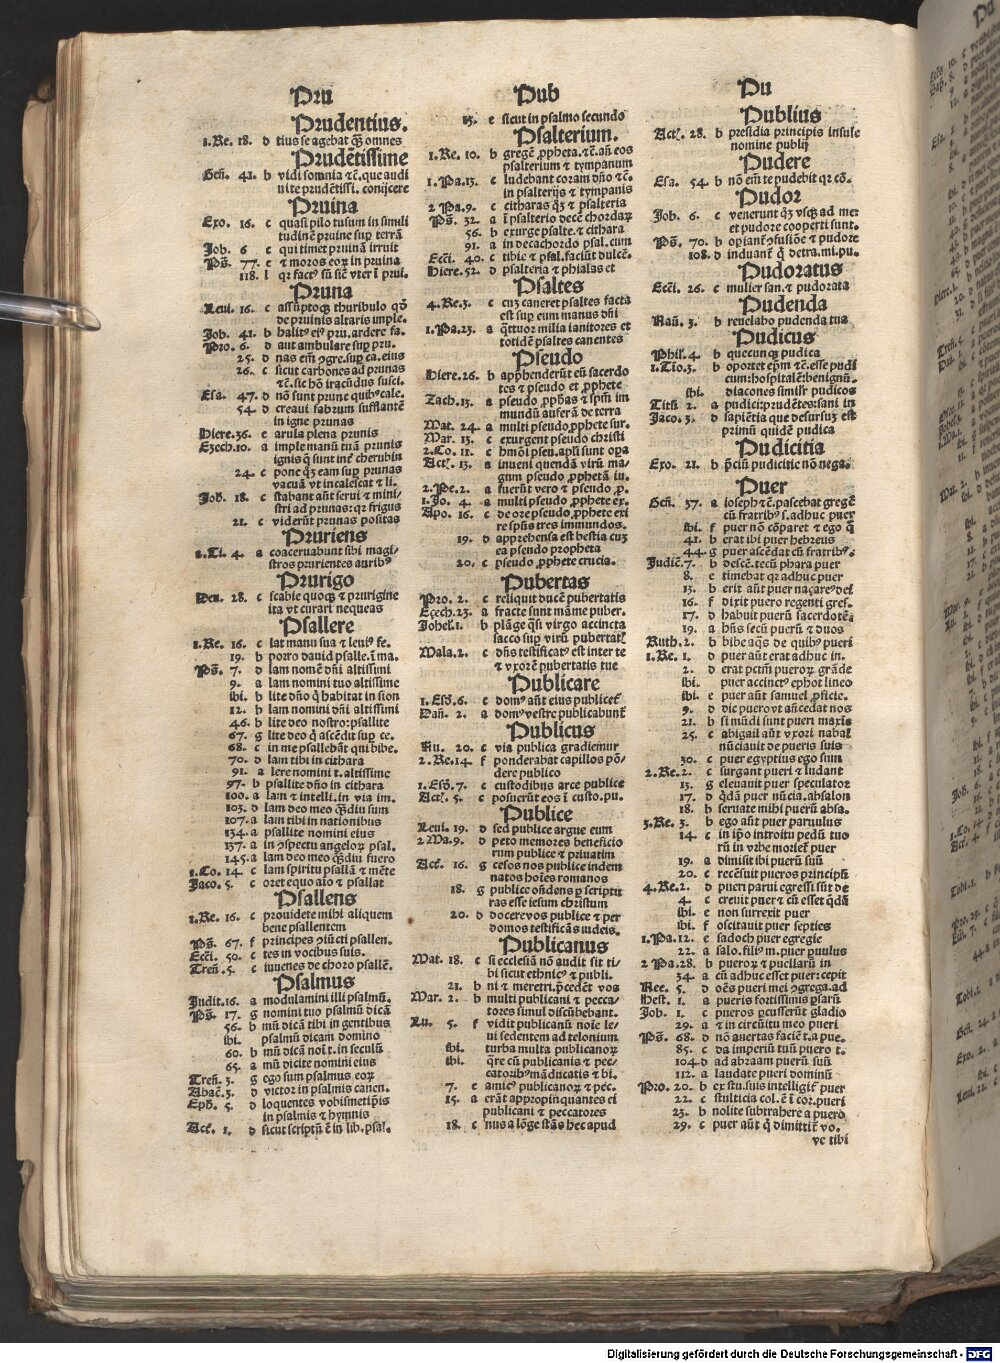 Pru
Prudentius.
1.Re. 18. d tius se agebat q̄ȝ omnes
Prudētissime
Geñ. 41. b vidi somnia ⁊ č. que audi
ui te prudētissi. conijcere
Pruina
Exo. 16. c quasi pilo tusum in simili
tudinē pruine sup terrā
Job. 6 c qui timet pruinā irruit
Ps̄. 77. e ⁊ moros eoꝝ in pruina
118. l qꝛ factꝰ sū sič vter ī prui.
Pruna
Leui. 16. c assūptoqꝫ thuribulo qđ
de prunis altaris imple.
Job. 41. b halitꝰ eiꝰ pru. ardere fa.
Pro. 6. d aut ambulare sup pru.
25. d nas em̄ ꝯgre. sup ca. eius
26. c sicut carbones ad prunas
⁊ č. sic hō iracūdus susci.
Esa. 47. d nō sunt prune quibꝰ cale.
54. d creaui fabrum sufflantē
in igne prunas
Hiere. 36. e arula plena prunis
Ezech. 10. a imple manū tuā prunis
ignis q̄ sunt inť cherubin
24. c pone qȝ eam sup prunas
vacuā vt incalescat ⁊ li.
Joh. 18. c stabant aūt serui ⁊ mini/
stri ad prunas: qꝛ frigus
21. c viderūt prunas positas
Pruriens
2.Ti. 4. a coaceruabunt sibi magi/
stros prurientes auribꝰ
Prurigo
Deu. 28. c scabie quoqꝫ ⁊ prurigine
ita vt curari nequeas
Psallere
1.Re. 16. c lat manu sua ⁊ leuiꝰ fe.
19. b porro dauid psalle. ī ma.
Ps̄. 7. d lam nomē dñi altissimi
9. a lam nomini tuo altissime
ibi. b lite dño q̄ habitat in sion
12. b lam nomini dñi altissimi
46. b lite deo nostro: psallite
67. g lite deo q̄ ascēdit sup ce.
68. c in me psallebāt qui bibe.
70. d lam tibi in cithara
91. a lere nomini t. altissime
97. b psallite dño in cithara
100. a lam ⁊ intelli. in via im.
103. d lam deo meo q̄ȝdiu sum
107. a lam tibi in nationibus
134. a psallite nomini eius
137. a in ꝯspectu angeloꝝ psal.
145. a lam deo meo q̄ȝdiu fuero
1.Co. 14. c lam spiritu psallā ⁊ mēte
Jaco. 5. c oret equo aīo ⁊ psallat
Psallens
1.Re. 16. c prouidete mihi aliquem
bene psallentem
Ps̄. 67. f principes ꝯiūcti psallen.
Ecci. 50. c tes in vocibus suis.
Treñ. 5. c iuuenes de choro psallē.
Psalmus
Judit. 16. a modulamini illi psalmū.
Ps̄. 17. g nomini tuo psalmū dicā
56. b mū dicā tibi in gentibus
ibi. psalmū dicam domino
60. b mū dicā noī t. in seculū
65. a mū dicite nomini eius
Treñ. 3. g ego sum psalmus eoꝝ
Abac. 3. d victor in psalmis canen.
Eph. 5. d loquentes vobismetipsis
in psalmis ⁊ hymnis
Act. 1. d sicut scriptū ē in lib. psal.
Pub
13. e sicut in psalmo secundo
Psalterium.
1.Re. 10. b gregē ꝓpheta. ⁊ č. añ eos
psalterium ⁊ tympanum
1.Pa. 13. c ludebant coram dño ⁊ č.
in psalterijs ⁊ tympanis
2 Pa. 9. c citharas qȝ ⁊ psalteria
Ps̄. 32. a ī psalterio decē chordaꝝ
56. b exurge psalte. ⁊ cithara
91. a in decachordo psal. cum
Ecci. 40. c tibie ⁊ psal. faciūt dulcē.
Hiere. 52. d psalteria ⁊ phialas et
Psaltes
4.Re. 3. c cuȝ caneret psaltes facta
est sup eum manus dñi
1.Pa. 23. a q̄ttuoꝛ milia ianitores et
totidē psaltes canentes
Pseudo
Hiere. 26. b apphenderūt eū sacerdo
tes ⁊ pseudo et ꝓphete
Zach. 13. a pseudo ꝓphas ⁊ spm̄ im
mundū auferā de terra
Mat. 24. a multi pseudo ꝓphete sur.
Mar. 13. c exurgent pseudo christi
2.Co. 11. c hmōi pseu. apli sunt opa
Act. 13. a inueni quendā virū ma/
gum pseudo ꝓphetā iu.
2.Pe. 2. a fuerūt vero ⁊ pseudo ꝓ.
1.Jo. 4. a multi pseudo ꝓphete ex.
Apo. 16. c de ore pseudo ꝓphete exi
re spūs tres immundos.
19. d apprehensa est bestia cuȝ
ea pseudo propheta
20. c pseudo ꝓphete crucia.
Pubertas
Pro. 2. c reliquit ducē pubertatis
Eȝech. 23. a fracte sunt māme puber.
Johel. 1. b plāge q̄si virgo accincta
sacco sup virū pubertať
Mala. 2. c dñs testificatꝰ est inter te
⁊ vxorē pubertatis tue
Publicare
1.Esđ. 6. c domꝰ aūt eius publiceť
Dañ. 2. a domꝰ vestre publicabunť
Publicus
Nu. 20. c via publica gradiemur
2.Re. 14. f ponderabat capillos pō/
dere publico
1.Esđ. 7. c custodibus arce publice
Act. 5. c posuerūt eos ī custo. pu.
Publice
Leui. 19. d sed publice argue eum
2 Ma. 9. d peto memores beneficio
rum publice ⁊ priuatim
Act. 16. g cesos nos publice indem
natos hoīes romanos
18. g publice ondens p scriptu
ras esse iesum christum
20. d docerē vos publice ⁊ per
domos testificās iudeis.
Publicanus
Mat. 18. c si ecclesiā nō audit sit ti/
bi sicut ethnicꝰ ⁊ publi.
21. b ni ⁊ meretri. p̄cedēt vos
Mar. 2. b multi publicani ⁊ pecca/
tores simul discūbebant.
Lu. 5. f vidit publicanū noīe le/
ui sedentem ad telonium
ibi. turba multa publicanoꝝ
ibi. q̄re cū publicanis ⁊ pec/
catoribꝰ māducatis ⁊ bi.
7. e amicꝰ publicanoꝝ ⁊ pec.
15. a erāt appropinquantes ei
publicani ⁊ peccatores
18. c nus a lōge stās hec apud
Pu
Publius
Act. 28. b presidia principis insule
nomine publij
Pudere
Esa. 54. b nō em̄ te pudebit qꝛ cō.
Pudor
Job. 6. c venerunt qȝ vsqꝫ ad me:
et pudore cooperti sunt.
Ps̄. 70. b opianť ꝯfusiōe ⁊ pudore
108. d induanť q̄ detra. mi. pu.
Pudoratus
Ecci. 26. c mulier san. ⁊ pudorata
Pudenda
Nañ. 3. b reuelabo pudenda tua
Pudicus
Phil. 4. b quecunqꝫ pudica
1.Tio. 3. b oportet epm̄ ⁊ č. esse pudi
cum: hospitalē: benignū.
ibi. diacones similꝛ pudicos
Titū 2. a pudici: prudētes: sani in
Jaco. 3. d sapiētia que desursuȝ est
primū quidē pudica
Pudicitia
Exo. 21. b p̄ciū pudicitie nō nega.
Puer
Geñ. 37. a ioseph ⁊ č. pascebat gregē
cū fratribꝰ s. adhuc puer
ibi. f puer nō cōparet ⁊ ego q̄
41. b erat ibi puer hebreus
44. g puer ascēdat cū fratribꝰ s.
Judič. 7. b descē. tecū phara puer
8. c timebat qꝛ adhuc puer
13. b erit aūt puer naȝareꝰ dei
16. f dixit puero regenti gres.
17. d habuit puerū sacerdotē.
19. a hñs secū puerū ⁊ duos
Ruth. 2. b bibe aq̄s de quibꝰ pueri
1.Re. 1. d puer aūt erat adhuc in.
2. d erat pctm̄ pueroꝝ grāde
ibi. puer accinctꝰ ephot lineo
ibi. e puer aūt samuel ꝓficie.
9. d dic puero vt añcedat nos
21. b si mūdi sunt pueri maxīe
25. c abigail aūt vxori nabal
nūciauit de pueris suis
30. c puer egyptius ego sum
2.Re. 2. c surgant pueri ⁊ ludant
13. g eleuauit puer speculator
17. d q̄dā puer nūcia. absalon
18. b seruate mihi puerū absa.
3.Re. 3. b ego aūt puer paruulus
14. c in ipo introitu pedū tuo
rū in vrbe morieť puer
19. a dimisit ibi puerū suū
20. c recēsuit pueros principū
4.Re. 2. d pueri parui egressi sūt de
4. c creuit puer ⁊ cū esset q̄dā
ibi. e non surrexit puer
ibi. f oscitauit puer septies
1.Pa. 12. e sadoch puer egregie
22. a salo. filiꝰ m. puer puulus
2 Pa. 28. b pueroꝝ ⁊ puellarū in
34. a cū adhuc esset puer: cepit
Nee. 5. d oēs pueri mei ꝯgrega. ad
Hest. 1. a pueris fortissimis psarū
Job. 1. c pueros pcusserūt gladio
29. a ⁊ in circūitu meo pueri
Ps̄. 68. d nō auertas faciē t. a pue.
85. c da imperiū tuū puero t.
104. d ad abraam puerū suū
112. a laudate pueri dominū
Pro. 20. b ex stu. suis intelligiť puer
22. c stulticia col. ē ī cor. pueri
23. b nolite subtrahere a puero
29. c puer aūt q̄ dimittiť vo.
vc tibi
Digitalisierung gefördert durch die Deutsche Forschungsgemeinschaft - DFG